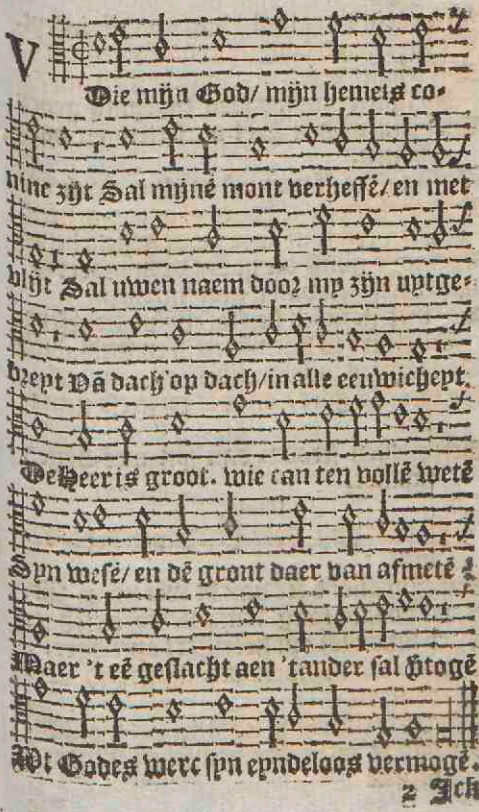 V
Die mijn God/ mijn hemels co-
ninc zyt Sal mijnē mont verheffē/ en met
vlijt Sal uwen naem door my zijn uytge-
breyt Vā dach op dach/ in alle eeuwicheyt.
De Heer is groot. wie can ten vollē wetē
Syn wesē/ en dē gront daer van afmetē
Maer 't eē geslacht aen 'tander sal togē
Wt Godes werc syn eyndeloos vermogē.
2 Ick